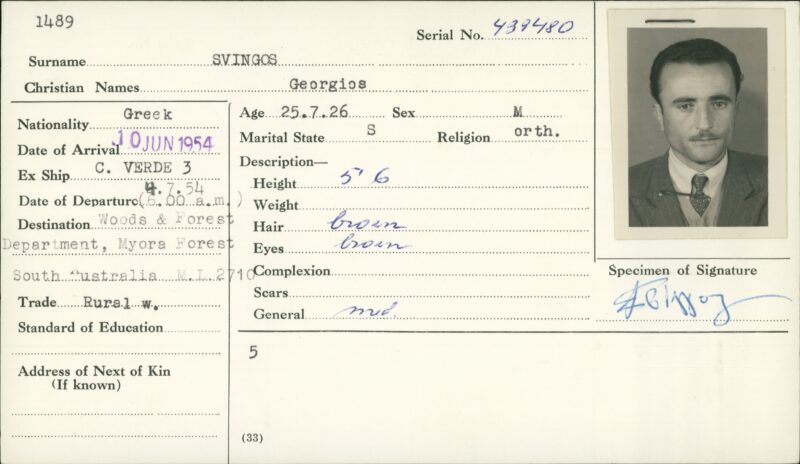 1489
Serial No. 439480
Surname SVINGOS
Christian Names Georgios
Nationality Greek
Date of Arrival 10 JUN 1954
Ex Ship C. VERDE 3
Date of Departure 4.7.54 (6.00 a.m.)
Destination Woods & Forest
Department, Myora Forest
South Australia M.I. 2710
Trade Rural w.
Standard of Education
Address of Next of Kin
(If known)
Age 25.7.26 Sex M
Marital State S Religion orth.
Description—
Height 5'6
Weight
Hair broen
Eyes broen
Complexion
Scars
General med.
5
(33)
Specimen of Signature